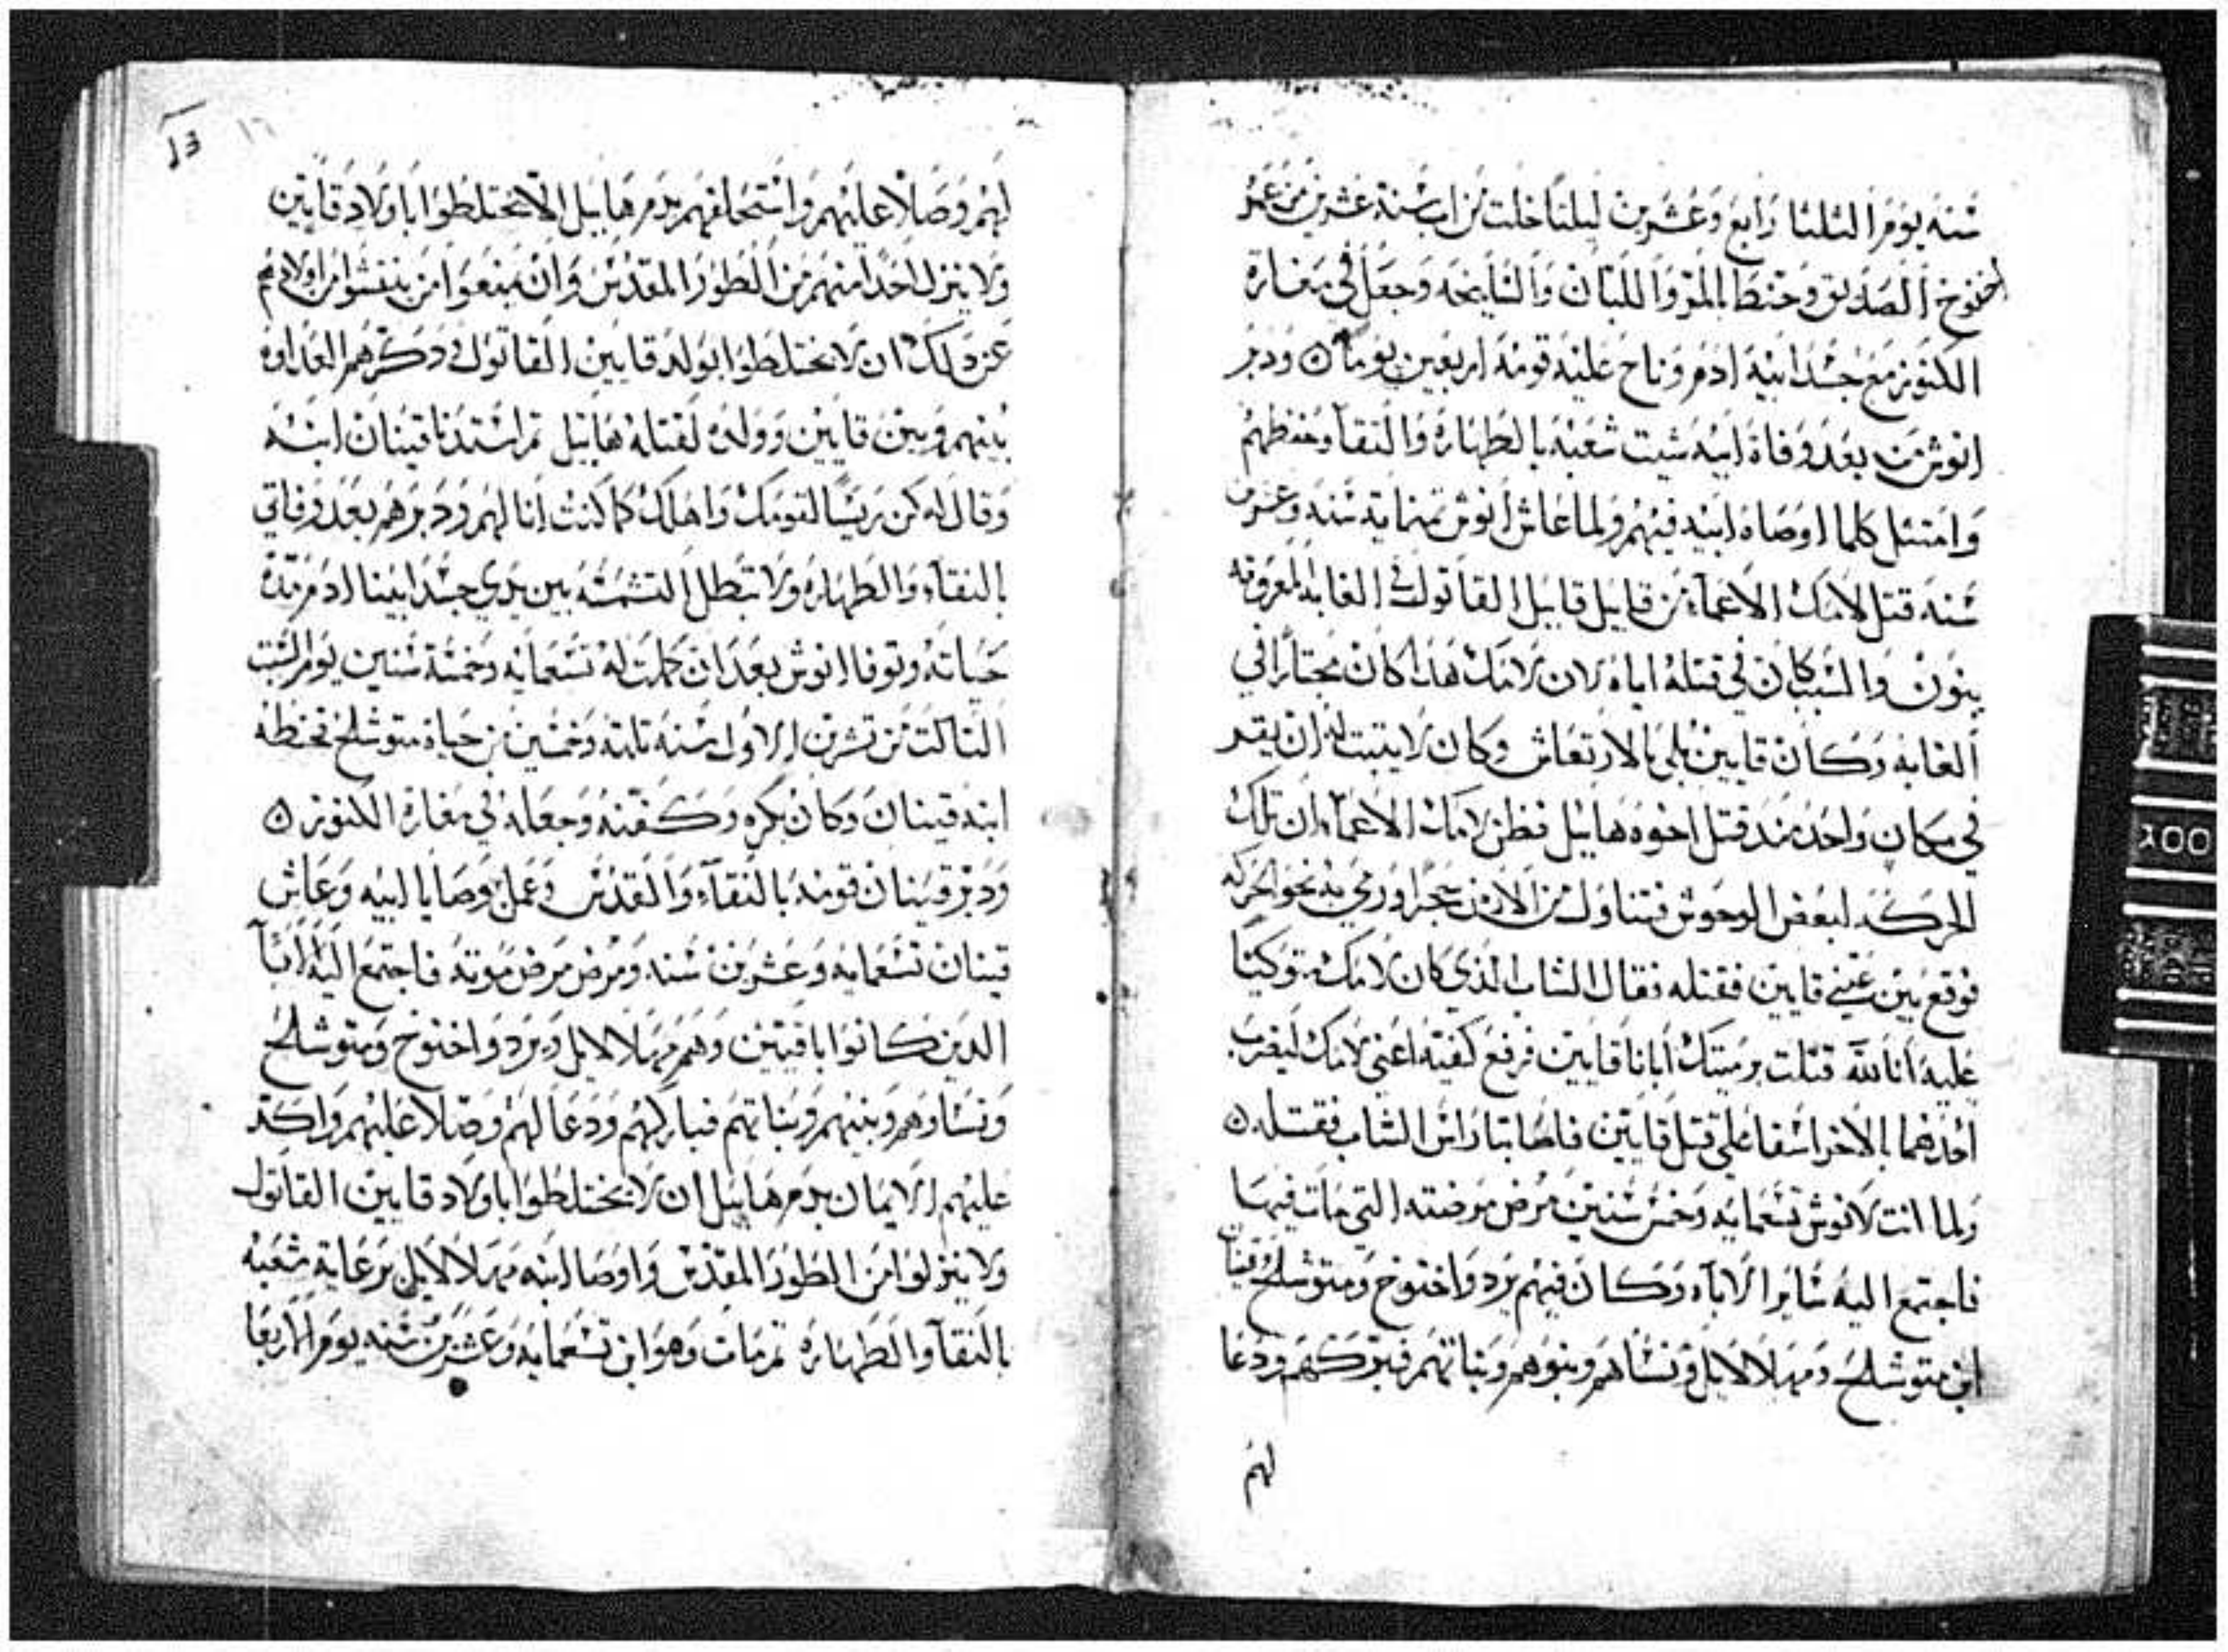 سنه يوم التلتا رابع وعشرين ليلتا خلت من اب سنة عشرين من عمر
اخنوخ الصديق وحنط بالمر واللبان والسليخه وجعل في مغارة
الكنوز مع جسد ابيه ادم وناح عليه قومه اربعين يوما ودبر
انوش من بعد وفاة ابيه شيت شعبه بالطهاره والنقا وحفظهم
وامتثل كلما اوصاه ابيه فيهم ولما عاش انوش تمنماية سنه وعشرين
سنه قتل لامك الاعماء من قابيل قابيل القاتول في الغابه المعروفه
بنون والسبب كان في قتله اياه لان لامك هذا كان مجتازا في
الغابه وكان قايين بلي بالارتعاش وكان لا يتبت له ان يقر
في مكان واحد مند قتل اخوه هابيل فظن لامك الاعماء ان تلك
الحركه لبعض الوحوش فتناول من الارض حجرا ورمي به نحو الحركه
فوقع بين عيني قايين فقتله فقال الشاب الذي كان لامك متوكيا
عليه انا لله قتلت برميتك ابانا قايين فرفع كفيه اعني لامك ليضرب
احدهما بالاخر اسفا علي قتل قايين فاصابتا راس الشاب فقتله
ولما اتت لانوش تسعمايه وخمس سنين مرض مرضته التي مات فيها
فاجتمع اليه ساير الاباه وكان فيهم يرد واخنوخ ومتوشلح قينان
ابن متوشلح ومهلالايل ونساهم وبنوهم وبناتهم فبركهم ودعا
لهم
لهم وصلا عليهم واستحلفهم بدم هابيل الا تختلطوا باولاد قايين
ولا ينزل احدا منهم من الطور المقدس وان يمنعوا من ينفشوا من اولادهم
عن دلك ان لا يختلطوا بولد قايين القاتول ودكرهم العداوه
بينهم وبين قايين وولده لقتله هابيل تم استدنا قينان ابنه
وقال له كن ريسا لقومك واهلك كما كنت انا لهم ودبرهم بعد وفاتي
بالنقاء والطهاره ولا تبطل الشمسه بين يدي جسد ابينا ادم مدة
حياته وتوفا انوش بعد ان كملت له تسعمايه وخمسة سنين يوم السبت
التالت من تشرين الاول سنة تلتة وخمسين من حياة متوشلح فحنطه
ابنه قينان وكان بكره وكفنه وجعله في مغارة الكنوز
ودبر قينان قومه بالنقاء والقدس وعمل وصايا ابيه وعاش
قينان تسعمايه وعشرين سنه ومرض مرض موته فاجتمع اليه الابا
الدين كانوا باقيين وهم مهلالايل ويرد واخنوخ ومتوشلح
ونساوهم وبنيهم وبناتهم فباركهم ودعا لهم وصلا عليهم واكد
عليهم الايمان بدم هابيل ان لا يختلطوا باولاد قايين القاتول
ولا ينزلوا من الطور المقدس واوصا ابنه مهلالايل برعاية شعبه
بالنقا والطهاره تم مات وهو ابن تسعمايه وعشرين سنه يوم الاربعا